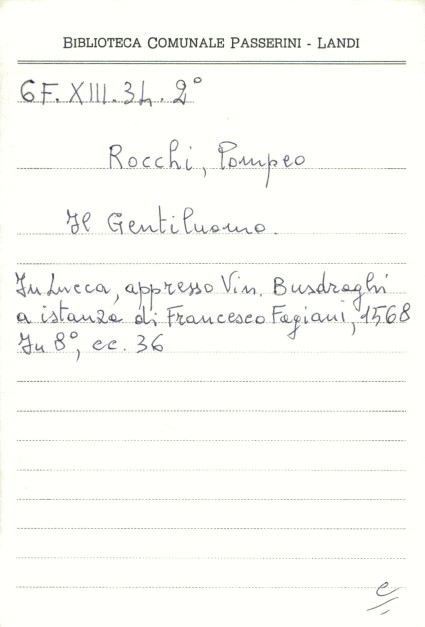 BIBLIOTECA COMUNALE PASSERINI - LANDI
6F. XIII. 34. 2°
Rocchi, Pompeo
Il Gentiluomo.
In Lucca, appresso Vin. Busdraghi
a istanza di Francesco Fagiani, 1568
In 8°, cc. 36
e